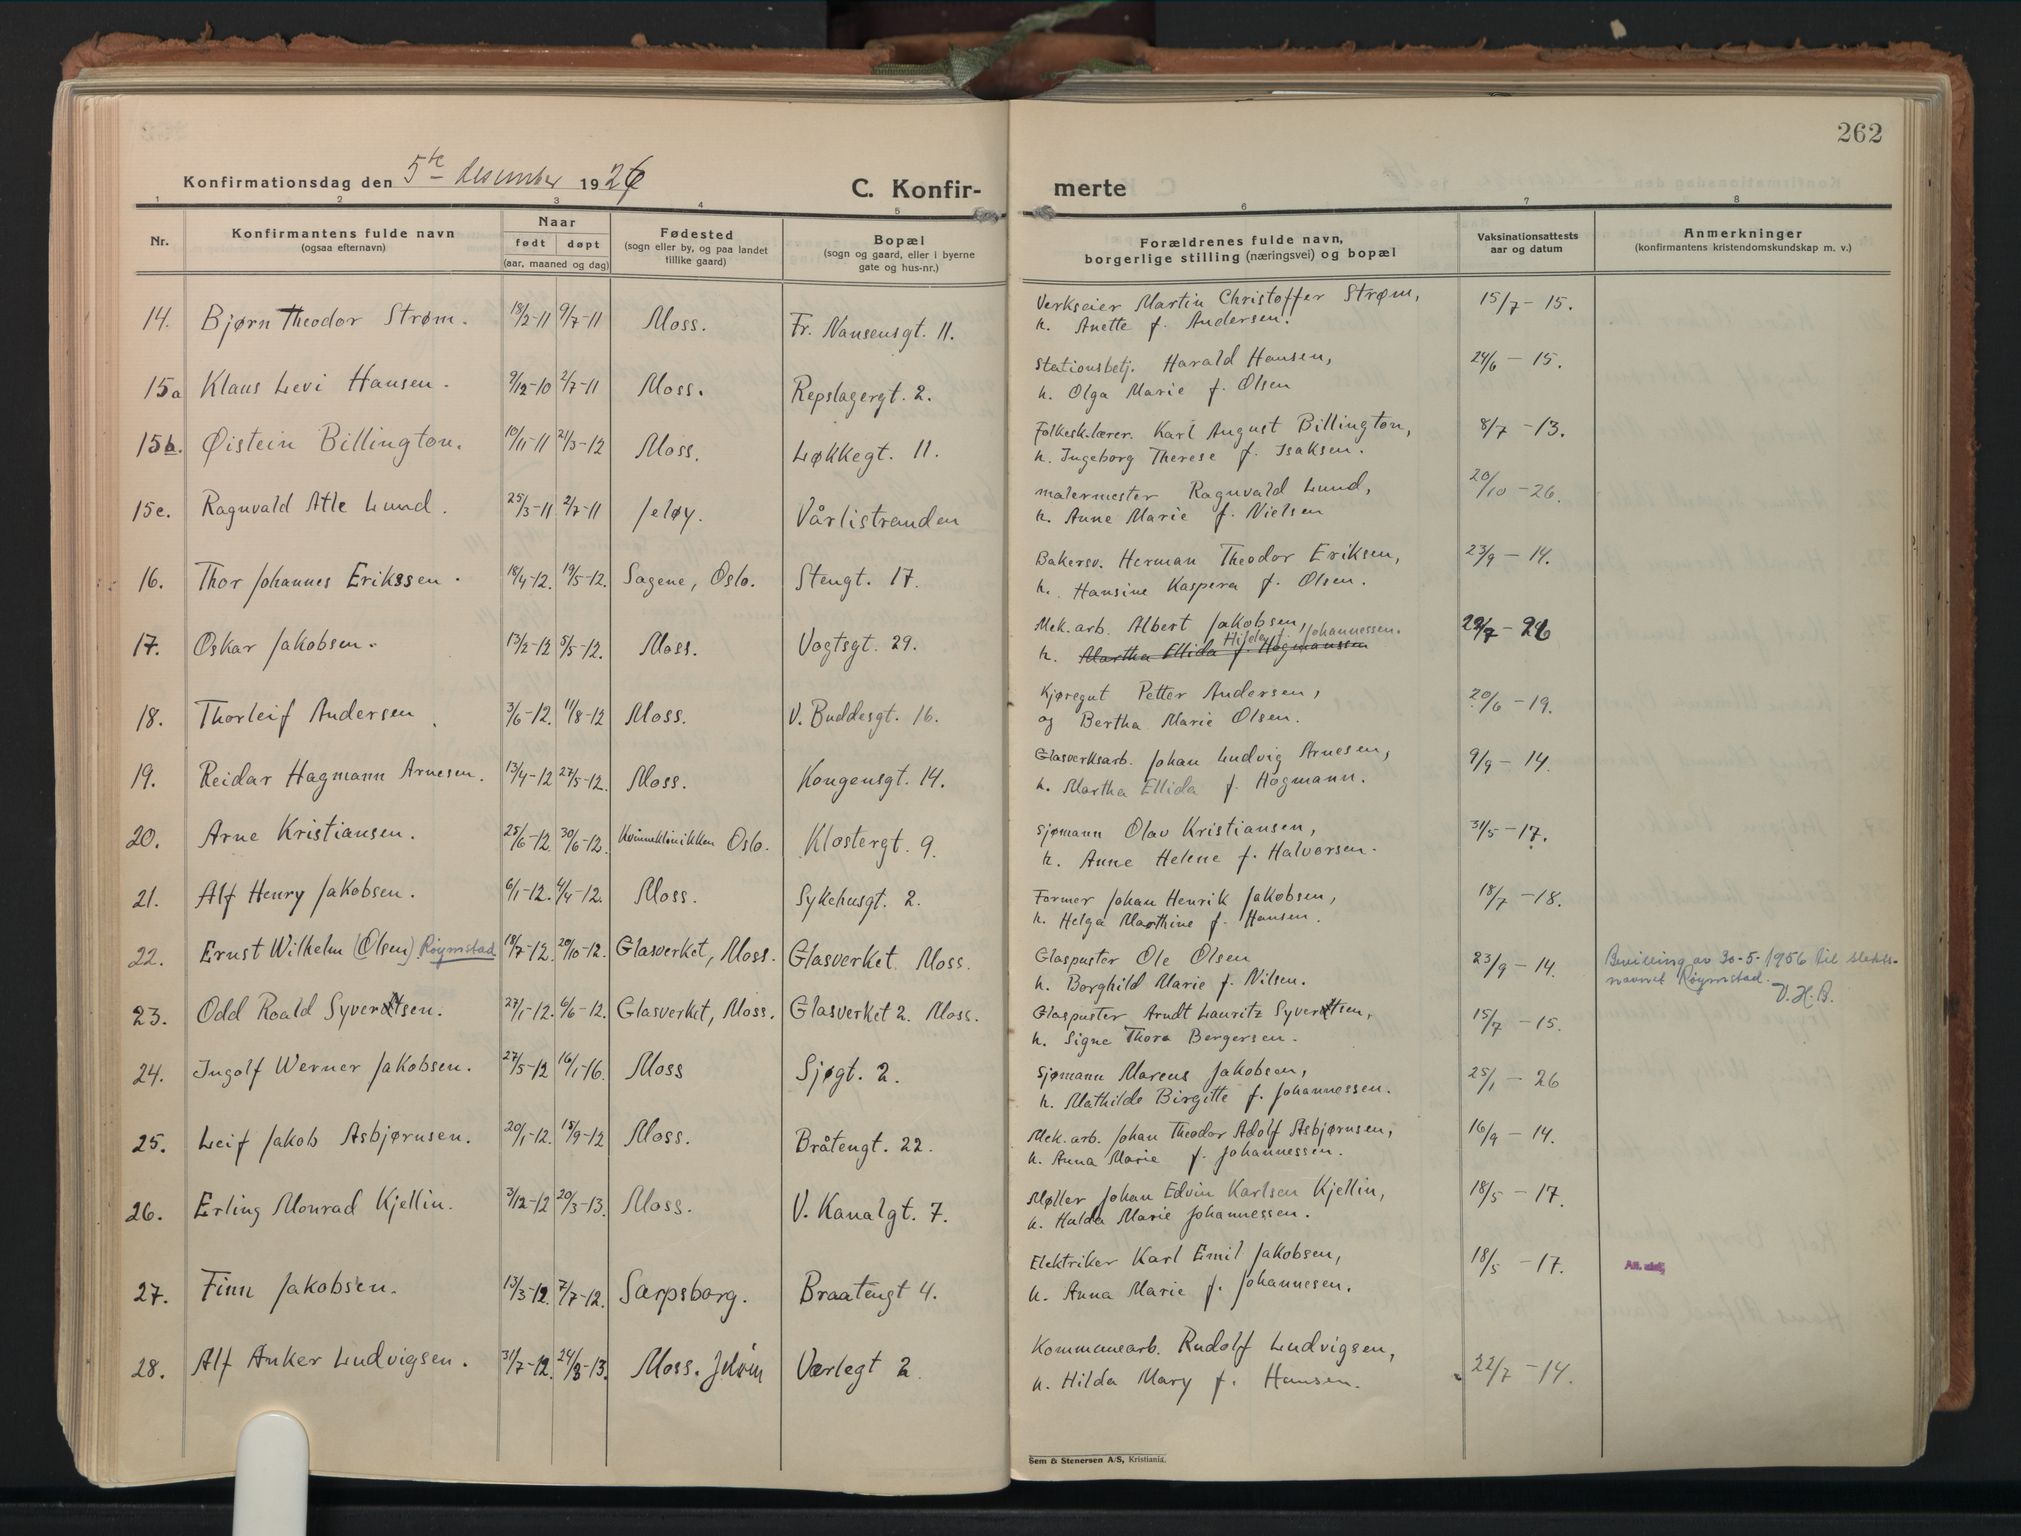 262
Konfirmationsdag den 5te desember 1926
C. Konfir- merte
1 2 3 4 5 6 7 8
Nr.
Konfirmantens fulde navn
(ogsaa efternavn)
Naar
født døpt
(aar, maaned og dag)
Fødested
(sogn eller by, og paa landet
tillike gaard)
Bopæl
(sogn og gaard, eller i byerne
gate og hus-nr.)
Forældrenes fulde navn,
borgerlige stilling (næringsvei) og bopæl
Vaksinationsattests
aar og datum
Anmerkninger
(konfirmantens kristendomskundskap m. v.)
14. Bjørn Theodor Strøm. 18/2-11 9/7-11 Moss. Fr. Nansensgt. 11. Verkseier Martin Christoffer Strøm, 15/7-15.
h. Anette f. Andersen.
15a Klaus Levi Hansen. 9/12-10 2/7-11 Moss. Repslagergt. 2. Stationsbetj. Harald Hansen, 24/6-15.
h. Olga Marie f. Olsen
15b. Øistein Billington. 10/11-11 21/3-12 Moss. Løkkegt. 11. Folkesk.lærer. Karl August Billington, 8/7-13.
h. Ingeborg Therese f. Isaksen.
15c. Ragnvald Atle Lund. 25/3-11 2/7-11 Jeløy. Vårlistranden malermester Ragnvald Lund, 20/10-26.
h. Anne Marie f. Nielsen
16. Thor Johannes Erikssen. 18/4-12. 19/5-12. Sagene, Oslo. Stengt. 17. Bakersv. Herman Theodor Eriksen, 23/9-14.
h. Hansine Kaspera f. Olsen.
17. Oskar Jakobsen. 13/2-12 5/5-12. Moss. Vogtsgt. 29. Mek. arb. Albert Jakobsen, 29/7-26
Hilda f. Johannessen.
h. Martha Ellida f. Hogmanssen
18. Thorleif Andersen. 3/6-12. 11/8-12 Moss. V. Buddesgt. 16. Kjøregut Petter Andersen, 20/6-19.
og Bertha Marie Olsen.
19. Reidar Hagmann Arnesen. 13/4-12 27/5-12. Moss. Kongensgt. 14. Glasverksarb. Johan Ludvig Arnesen, 9/9-14.
h. Martha Ellida f. Hogmann.
20. Arne Kristiansen. 25/6-12. 30/6-12. Kvinneklinikken Oslo. Klostergt. 9. Sjømann Olav Kristiansen, 31/5-17.
h. Anne Helene f. Halvorsen.
21. Alf Henry Jakobsen. 6/1-12. 4/4-12. Moss. Sykehusgt. 2. Former Johan Henrik Jakobsen, 18/7-18.
h. Helga Marthine f. Hansen.
22. Ernst Wilhelm (Olsen) Røymstad 18/7-12. 20/10-12. Glasverket, Moss. Glasverket. Moss. Glaspuster Ole Olsen 23/9-14. Bevilling av 30-5-1956 til slekts-
h. Borghild Marie f. Nilsen. navnet Røymstad.
V.H.B.
23. Odd Roald Syvertsen. 27/1-12. 6/6-12. Glasverket, Moss. Glasverket 2. Moss. Glaspuster Arndt Lauritz Syvertsen, 15/7-15.
h. Signe Thora Bergersen.
24. Ingolf Werner Jakobsen. 27/5-12 16/1-16. Moss Sjøgt. 2. Sjømann Marcus Jakobsen, 25/1-26
h. Mathilde Birgitte f. Johannessen.
25. Leif Jakob Asbjørnsen. 20/1-12. 15/9-12 Moss. Bråtengt. 22. Mek. arb. Johan Theodor Adolf Asbjørnsen, 16/9-14.
h. Anna Marie f. Johannessen.
26. Erling Monrad Kjellin. 3/12-12 20/3-13. Moss. V. Kanalgt. 7. Møller Johan Edvin Karlsen Kjellin, 18/5-17.
h. Hulda Marie Johannessen.
27. Finn Jakobsen. 13/3-12. 7/7-12. Sarpsborg. Braatengt 4. Elektriker Karl Emil Jakobsen, 18/5-17.
h. Anna Marie f. Johannesen.
28. Alf Anker Ludvigsen. 31/7-12. 24/3-13. Moss. Værlegt 2. Kommunearb. Rudolf Ludvigsen, 22/7-14.
h. Hilda Mary f. Hansen.
Sem & Stenersen A/S, Kristiania.